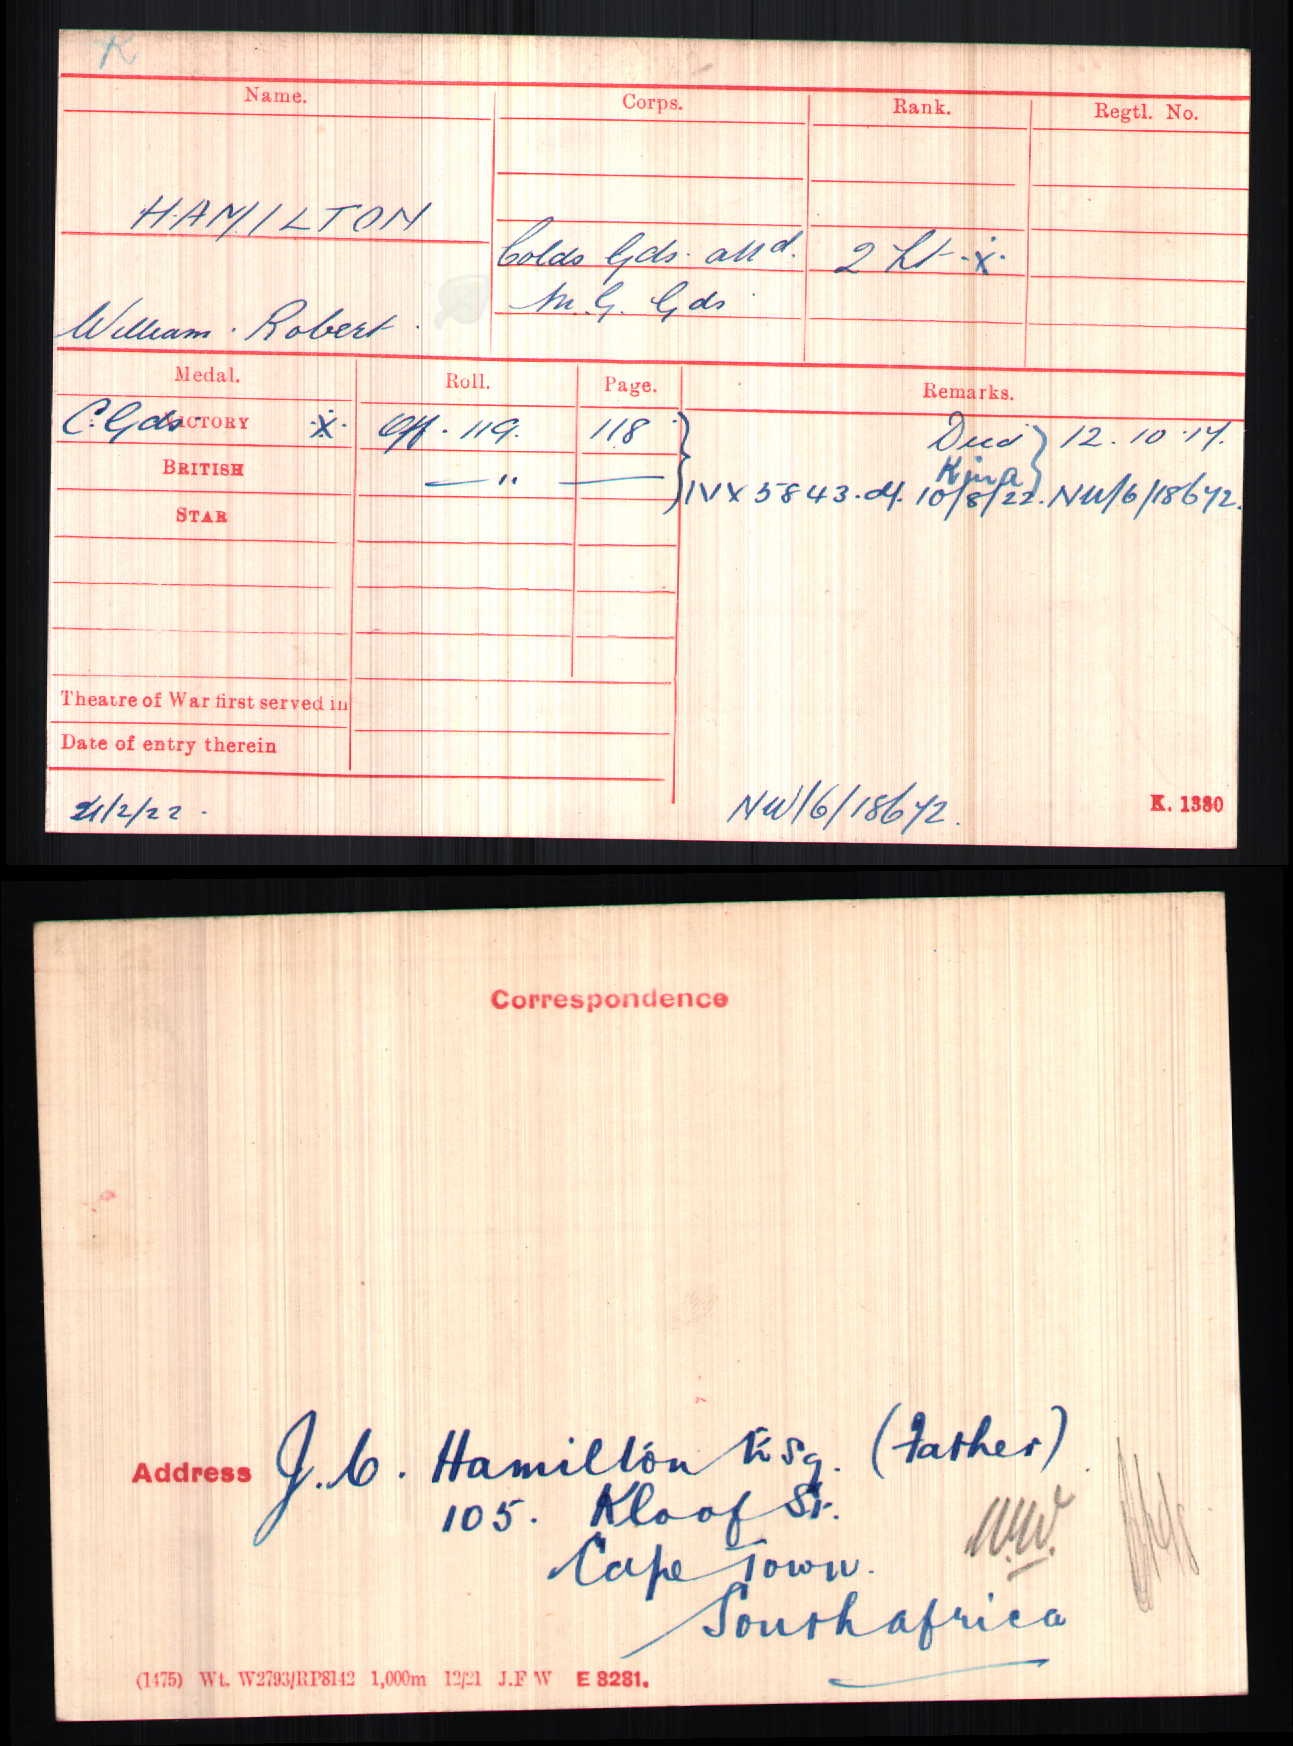 K
Name. Corps. Rank. Regtl. No.
HAMILTON
Colds Gds. attd. 2 Lt ·x·
M. G. Gds
William. Robert.
Medal. Roll. Page. Remarks.
C. Gds VICTORY ·x· Off. 119. 118 Died 12.10.17.
BRITISH — " — K in a
IVX 5843. d/. 10/8/22. NW/6/18672.
STAR
Theatre of War first served in
Date of entry therein
21/2/22. NW/6/18672. K. 1380
Correspondence
Address J. C. Hamilton Esq. (Father)
105. Kloof St.
Cape Town.
South africa
(1475) Wt. W2793/RP8142 1,000m 12/21 J.F W E 8281.